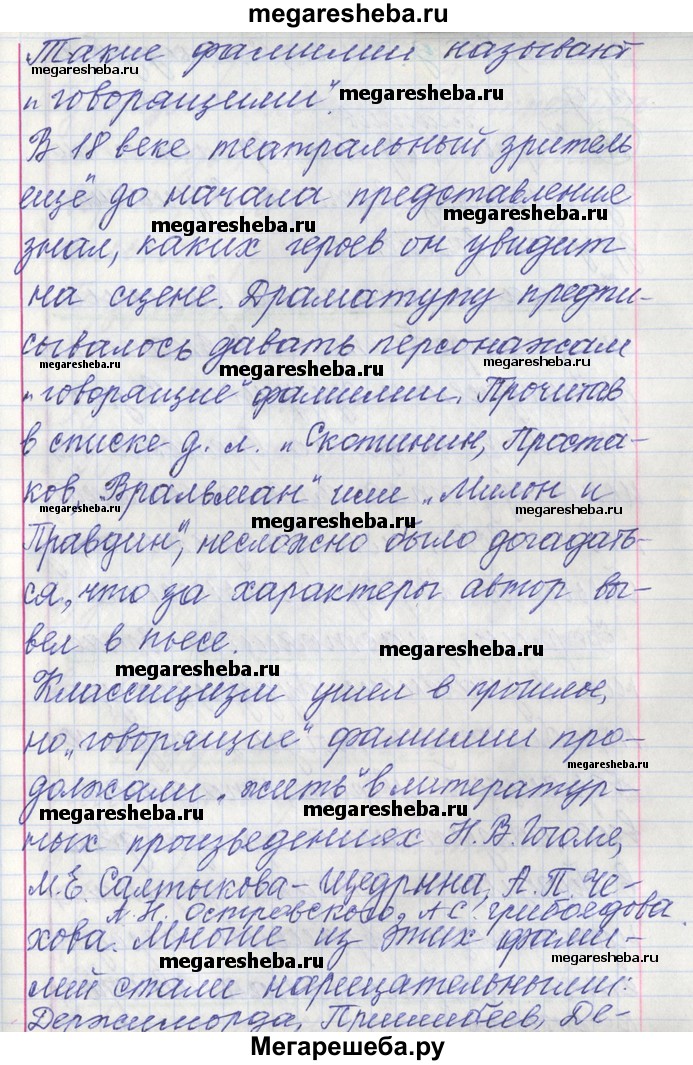 megaresheba.ru
Такие фамилии называют
megaresheba.ru
"говорящими".
megaresheba.ru
В 18 веке театральный зритель
ещё до начала представление
megaresheba.ru
megaresheba.ru
знал, каких героев он увидит
на сцене. Драматургу предпи-
сывалось давать персонажам
megaresheba.ru megaresheba.ru megaresheba.ru
"говорящие" фамилии. Прочитав
в списке д. л. "Скотинин, Проста-
ков, Вральман" или "Милон и
megaresheba.ru megaresheba.ru megaresheba.ru
Правдин", несложно было догадать-
ся, что за характеры автор вы-
вел в пьесе.
megaresheba.ru megaresheba.ru
Классицизм ушел в прошлое,
но "говорящие" фамилии про-
megaresheba.ru
должали "жить" в литератур-
megaresheba.ru megaresheba.ru
ных произведениях Н.В. Гоголя,
М.Е. Салтыкова-Щедрина, А.П. Че-
А.Н. Островского, А.С. Грибоедова.
хова. Многие из этих фами-
megaresheba.ru megaresheba.ru
лий стали нарицательными:
Держиморда, Пришибеев, Де-
Мегарешеба.ру